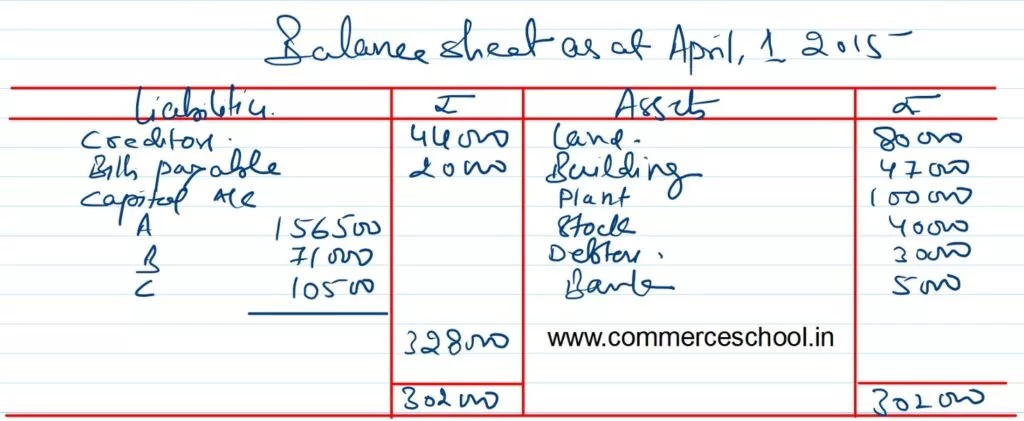 Balance sheet as at April, 1 2015
Liabilities ₹ Assets ₹
Creditors. 44000 Land. 80000
Bills payable 20000 Building 47000
Capital A/c Plant 100000
A 156500 Stock 40000
B 71000 Debtors. 30000
C 10500 Bank 5000
328000 www.commerceschool.in
302000 302000